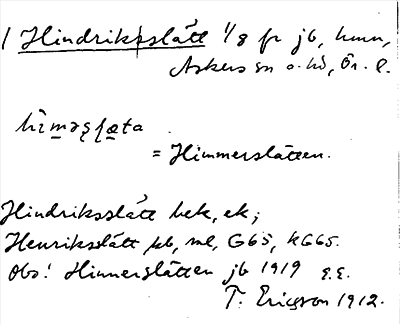 / Hindriksslätt 1/8 fr jb, hmn,
Askers sn o. hd, Ör. l.
hìmərs̡l̡æta
= Himmerslätten.
Hindriksslätt bek, ek;
Henriksslätt jb, ml, G65, KG65.
Obs! Himmerslätten jb 1919 E.E.
T. Ericson 1912.